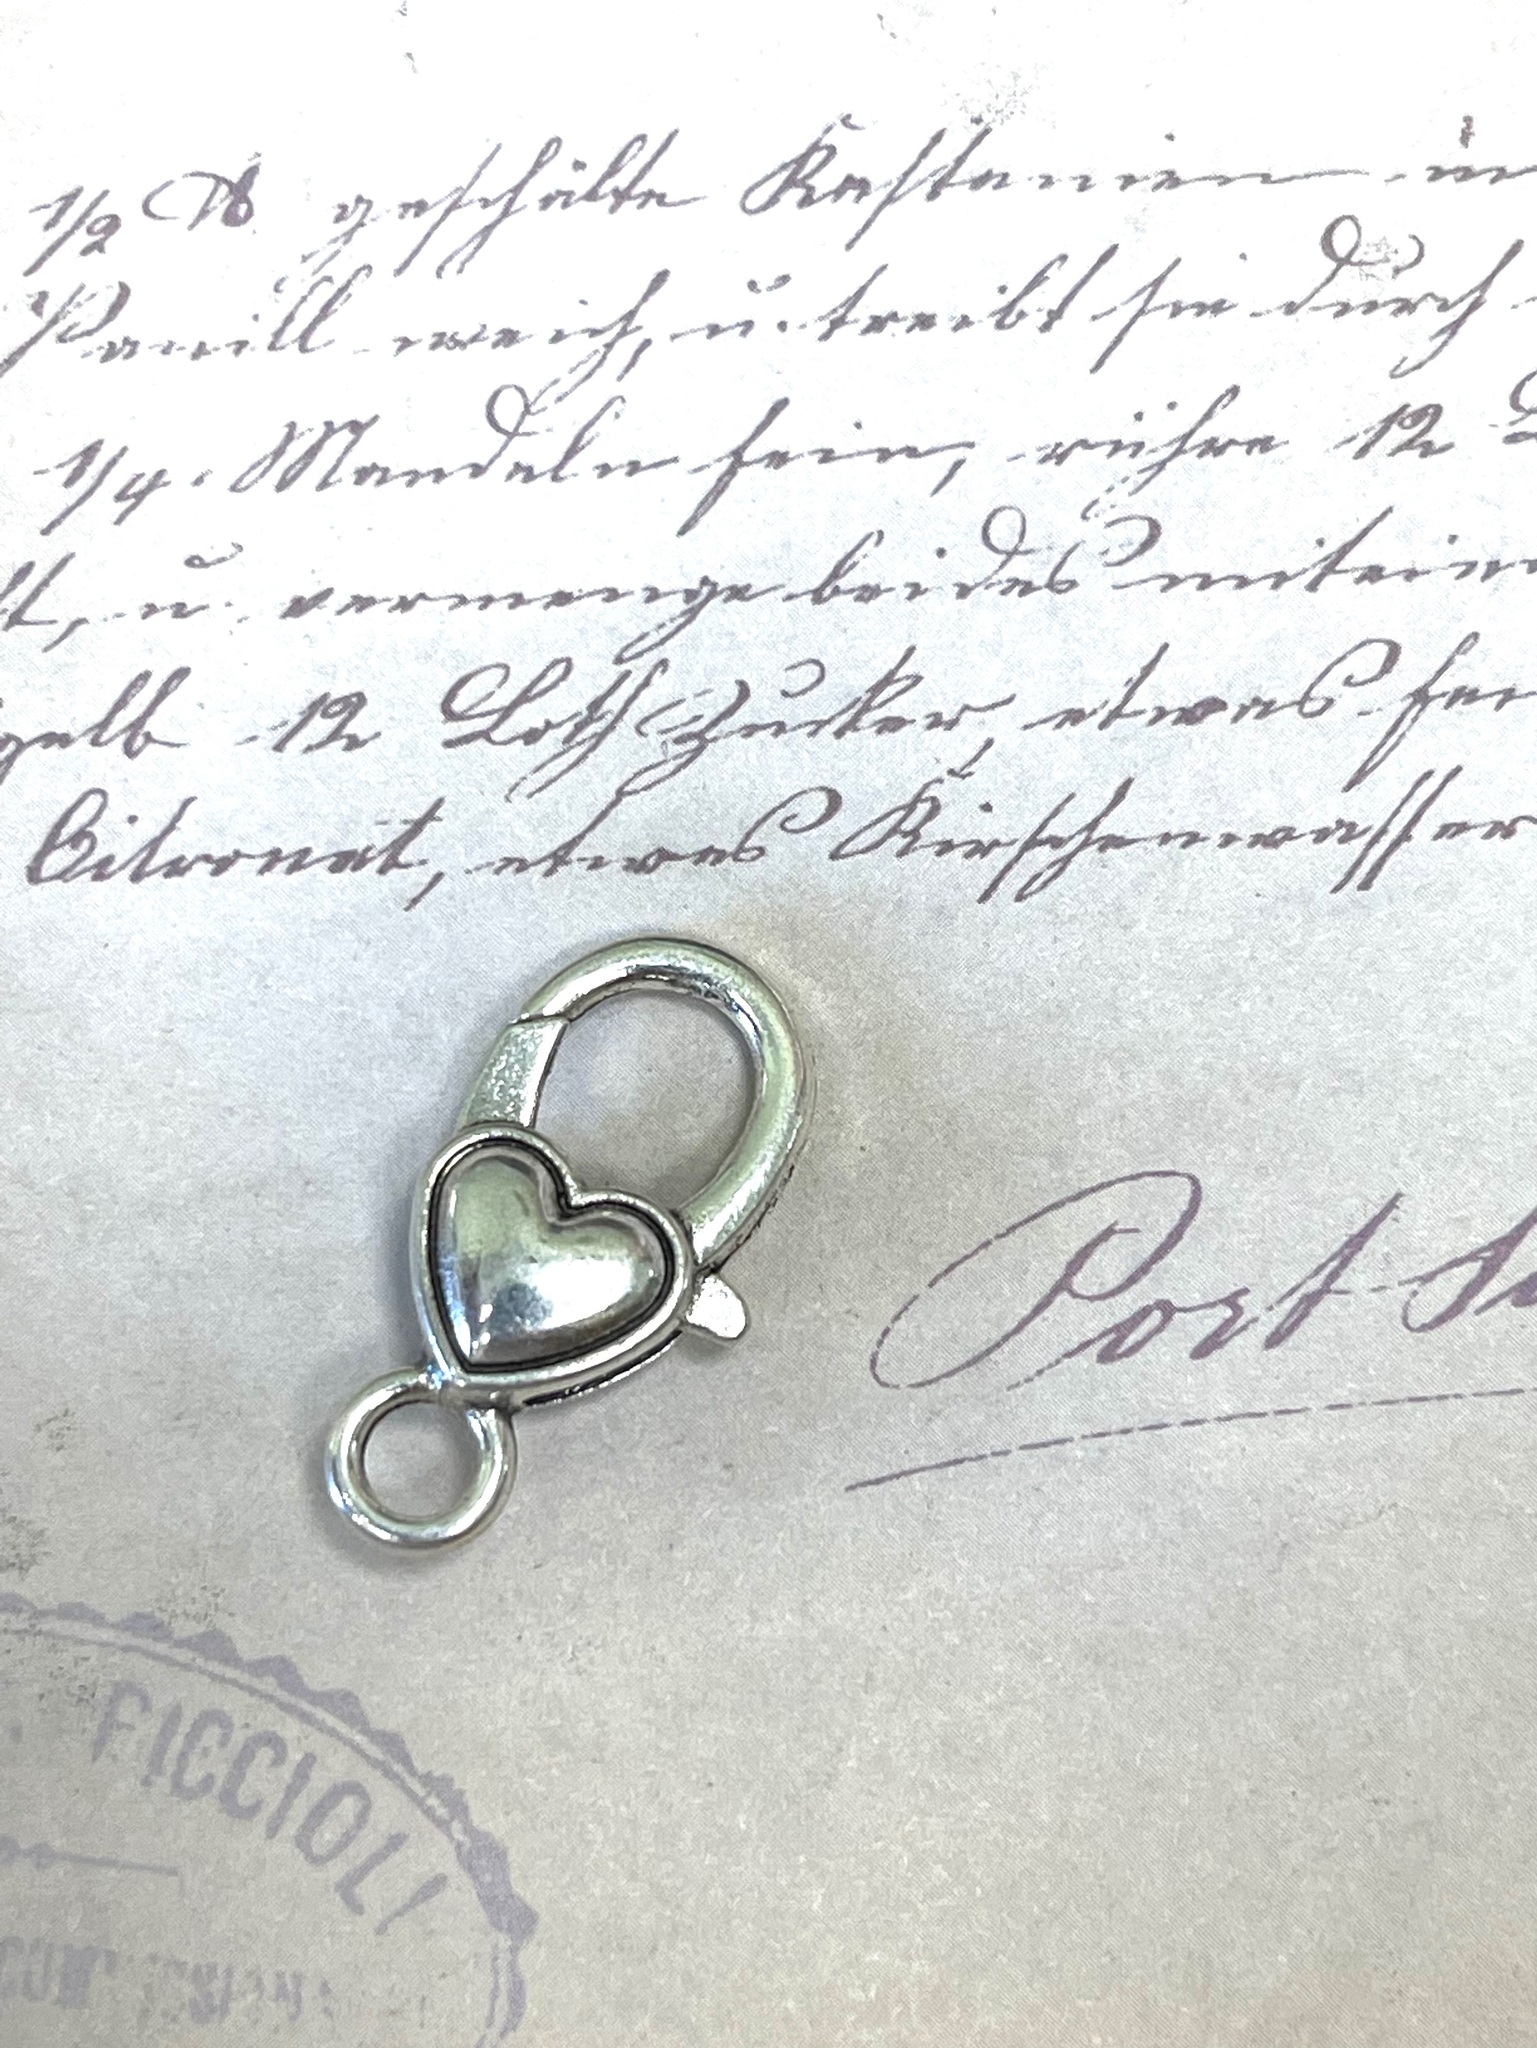 1/2 ℔ geschälte Kastanien in
Vanill weich, u. treibt sie durch
1/4. Mandeln fein, rühre 12
u. vermenge beides mitein
gelb 12 Loth Zucker, etwas fei
Citronat, etwas Kirschenwasser
Post
FICCIOLI